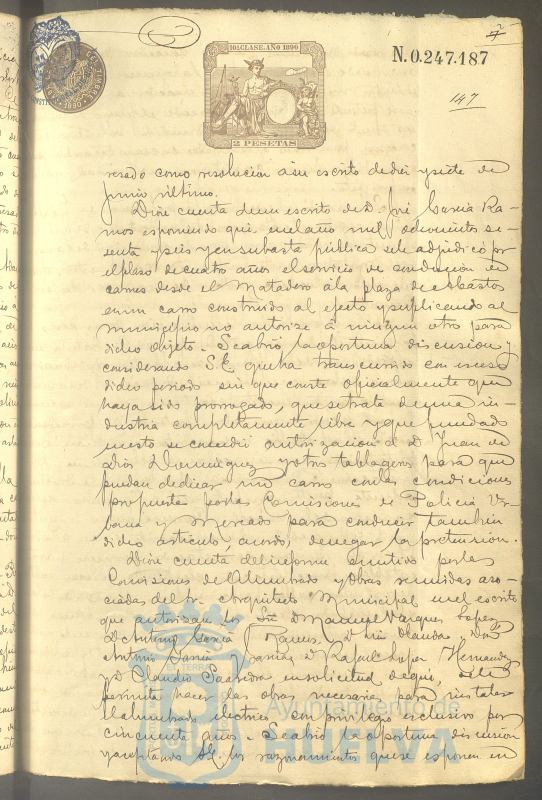 10ª CLASE. AÑO 1890
2 PESETAS
N.0.247.187
147
resado como resolucion á su escrito de diez y siete de
junio último.
Dióse cuenta de un escrito de D. José García Ra-
mos exponiendo que en el año mil ochocientos se-
senta y seis y en subasta pública se le adjudicó por
el plazo de cuatro años el servicio de conduccion de
carnes desde el Matadero á la plaza de Abastos
en un carro construido al efecto y suplicando al
municipio no autorize á ningun otro para
dicho objeto. Se abrió la oportuna discusion y
considerando S.E. que ha transcurrido con exceso
dicho periodo sin que conste oficialmente que
haya sido prorrogado, que se trata de una in-
dustria completamente libre y que
se concedió autorizacion á D. Juan de
Dios Dominguez y otros tablageros para que
puedan dedicar un carro con las condiciones
propuestas por las Comisiones de Policia Ur-
bana y Mercado para conducir tambien
dicho artículo, acordó denegar la pretension.
Dióse cuenta del informe emitido por las
Comisiones de Alumbrado y Obras reunidas aso-
ciadas del Sr. Arquitecto Municipal en el escrito
que autorizan los Sres. D. Manuel Vazquez Lopez
D. Antonio García Ramos, D. y D.
Antonio García García, D. Rafael Lopez Hernandez
y D. Claudio Saavedra en solicitud de que se les
permita hacer las obras necesarias para instalar
el alumbrado electrico con privilegio exclusivo por
cincuenta años. Se abrió la oportuna discusion
y aceptando S.E. los razonamientos que se exponen en
Ayuntamiento de
HUELVA